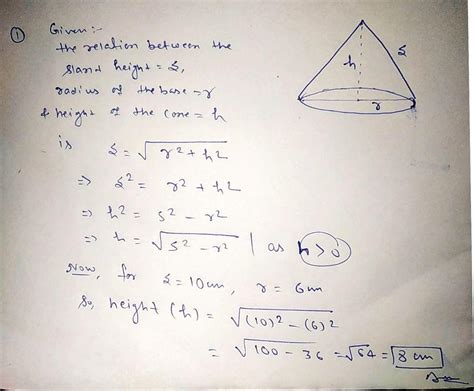 ① Given :-
the relation between the
slant height = s,
radius of the base = r
& height of the cone = h
is s = √(r² + h²)
⇒ s² = r² + h²
⇒ h² = s² - r²
⇒ h = √(s² - r²) | as h > 0
Now, for s = 10 cm, r = 6 cm
So, height (h) = √((10)² - (6)²)
= √(100 - 36) = √64 = 8 cm
h
s
r